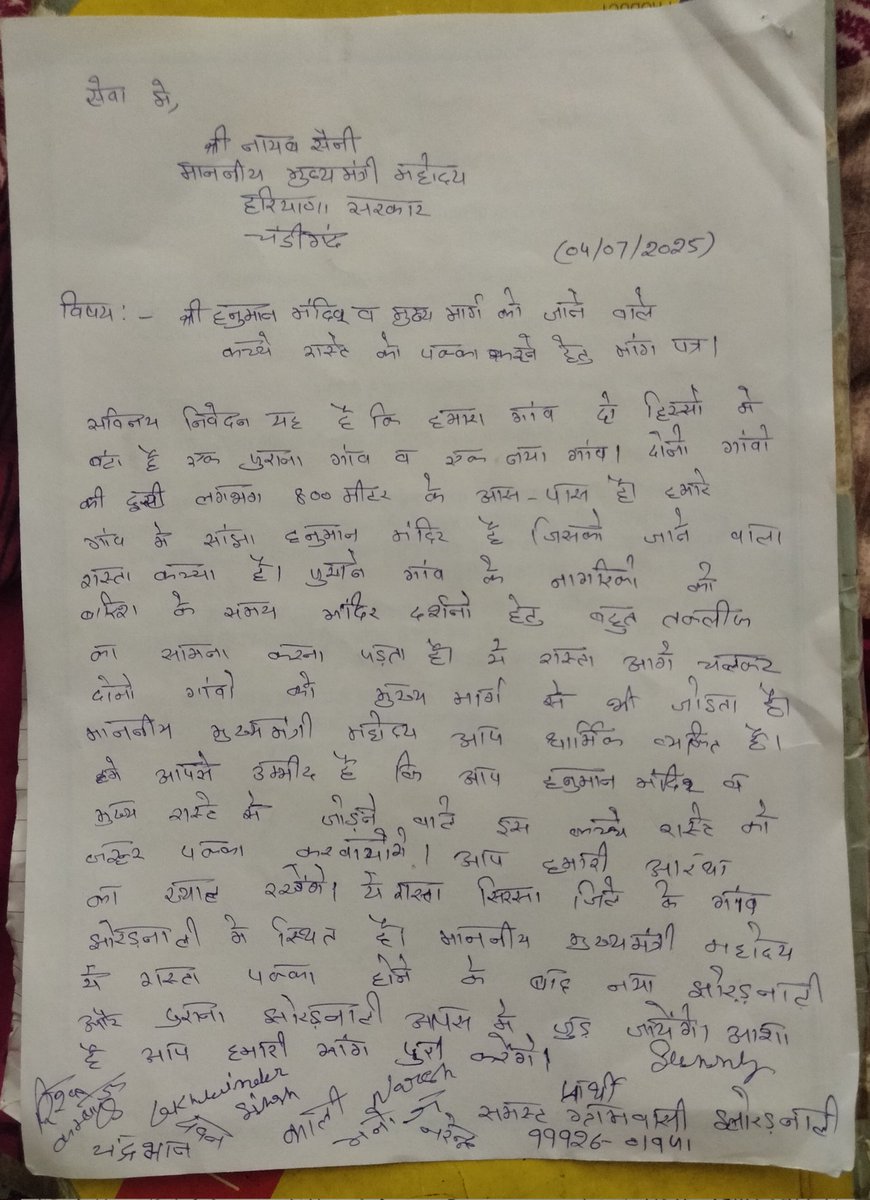 सेवा मे,
श्री नायब सैनी
माननीय मुख्यमंत्री महोदय
हरियाणा सरकार
चंडीगढ़
(04/07/2025)
विषय:- श्री हनुमान मंदिर व मुख्य मार्ग को जाने वाले
कच्चे रास्ते को पक्का करने हेतु मांग पत्र।
सविनय निवेदन यह है कि हमारा गांव दो हिस्सो मे
बंटा है एक पुराना गांव व एक नया गांव। दोनो गांवो
की दुरी लगभग 800 मीटर के आस-पास है। हमारे
गांव मे सांझा हनुमान मंदिर है जिसको जाने वाला
रास्ता कच्चा है। पुराने गांव के नागरिको को
बारिश के समय मंदिर दर्शनो हेतु बहुत तकलीफ
का सामना करना पड़ता है। ये रास्ता आगे चलकर
दोनो गांवो को मुख्य मार्ग से भी जोड़ता है।
माननीय मुख्यमंत्री महोदय आप धार्मिक व्यक्ति है।
हमे आपसे उम्मीद है कि आप हनुमान मंदिर व
मुख्य रास्ते से जोड़ने वाले इस कच्चे रास्ते को
जरूर पक्का करवायेगे। आप हमारी आस्था
का ख्याल रखेंगे। ये रास्ता सिरसा जिले के गांव
झोरड़नाली मे स्थित है। माननीय मुख्यमंत्री महोदय
ये रास्ता पक्का होने के बाद नया झोरड़नाली
और पुराना झोरड़नाली आपस मे जुड़ जायेंगे। आशा
है आप हमारी मांग पुरी करेंगे।
Sunny
प्रार्थी
समस्त ग्रामवासी झोरड़नाली
Lakhwinder
Singh
चंद्रभान
काली
Naresh